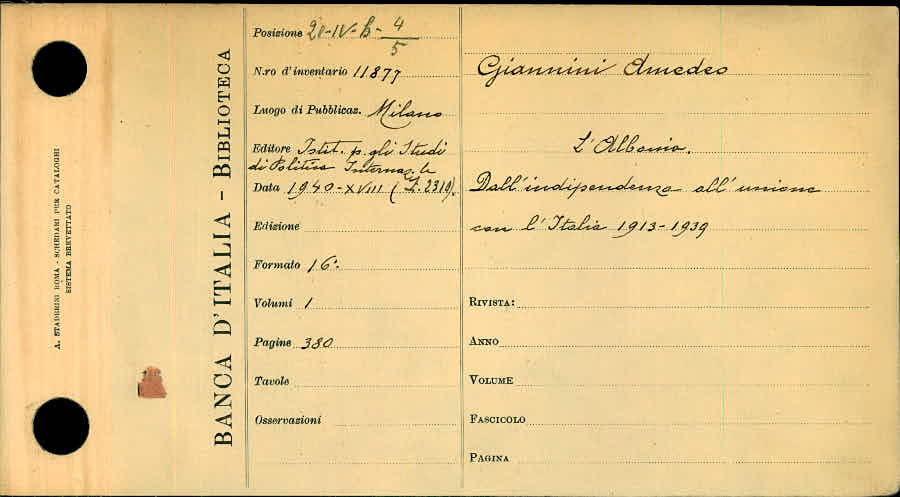 A. STADERINI ROMA - SCHEDARI PER CATALOGHI
SISTEMA BREVETTATO
BANCA D'ITALIA - BIBLIOTECA
Posizione 20-IV-B-4/5
N.ro d'inventario 11877
Luogo di Pubblicaz. Milano
Editore Istit. p. gli Studi
di Politica Internaz.le
Data 1940-XVIII (I. 2319).
Edizione
Formato 16°.
Volumi 1
Pagine 380
Tavole
Osservazioni
Giannini Amedeo
L'Albania.
Dall'indipendenza all'unione
con l'Italia 1913-1939
RIVISTA:
ANNO
VOLUME
FASCICOLO
PAGINA